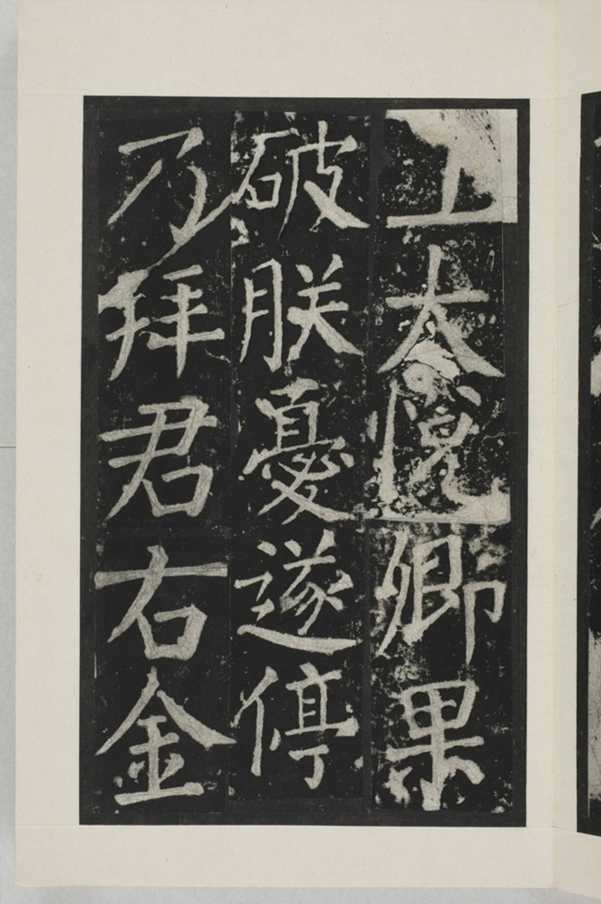 上大悅卿果
破朕憂遂停
乃拜君右金